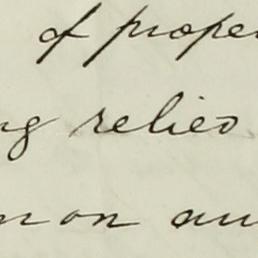 of proper
ng relied
n on an